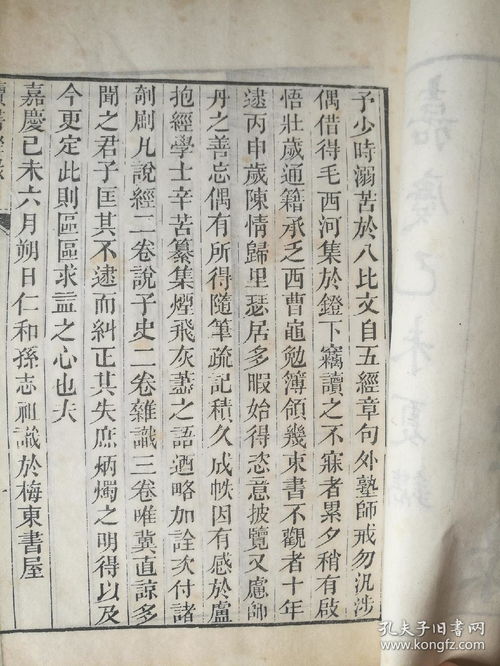 予少時溺苦於八比文自五經章句外塾師戒勿汎涉
偶借得毛西河集於鐙下竊讀之不寐者累夕稍有啟
悟壯歲通籍承乏西曹黽勉簿領幾束書不觀者十年
逮丙申歲陳情歸里瑟居多暇始得恣意披覽又慮師
丹之善忘偶有所得隨筆疏記積久成帙因有感於盧
抱經學士辛苦纂集煙飛灰蓋之語迺略加詮次付諸
剞劂凡說經二卷說子史二卷雜識三卷唯冀直諒多
聞之君子匡其不逮而糾正其失庶炳燭之明得以及
今更定此則區區求益之心也夫
嘉慶己未六月朔日仁和孫志祖識於梅東書屋
嘉慶己未夏鐫
孔夫子旧书网
kongfz.com